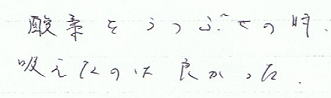 酸素をうつぶせの時.
吸えたのは良かった.